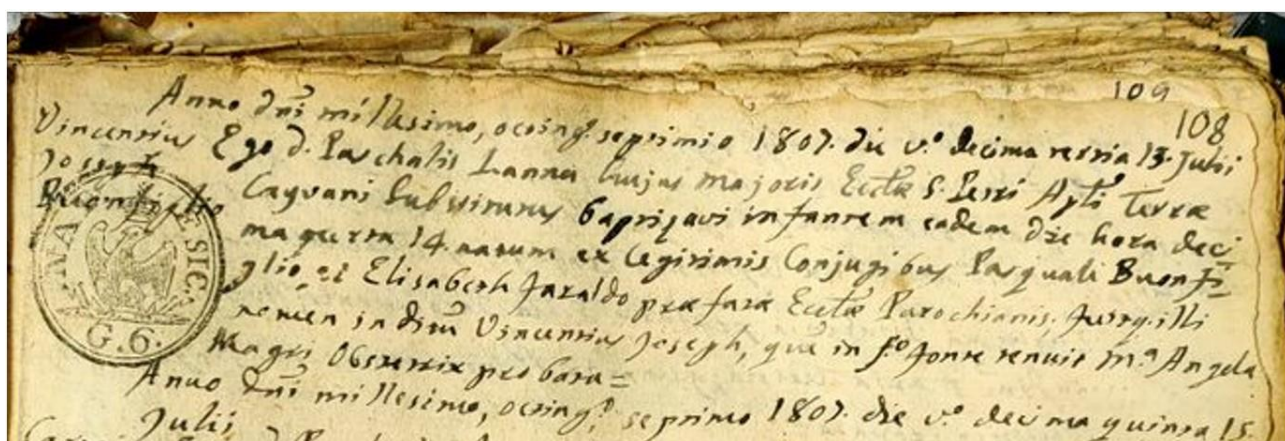 109
108
Anno dñi millesimo, octing.º septimo 1807. die v.º decima tertia 13. Julii
Vincentius
Joseph
Buonfiglio
Ego d. Paschalis Lanna hujus majoris Ecclæ S. Petri Apli Terræ
Cayvani Substitutus baptizavi infantem eadem die hora deci
ma quarta 14. natum ex legitimis Conjugibus Pasquali Buonfi=
glio, et Elisabeth Faraldo præfatæ Ecclæ Parochianis, fuitq. illi
nomen inditū Vincentius Joseph, quē in S.º fonte tenuit m.ª Angela
Magri Obstetrix probata=
NA E SIC.
G. 6.
Anno dñi millesimo, octing.º septimo 1807. die v.º decima quinta 15.
Julii